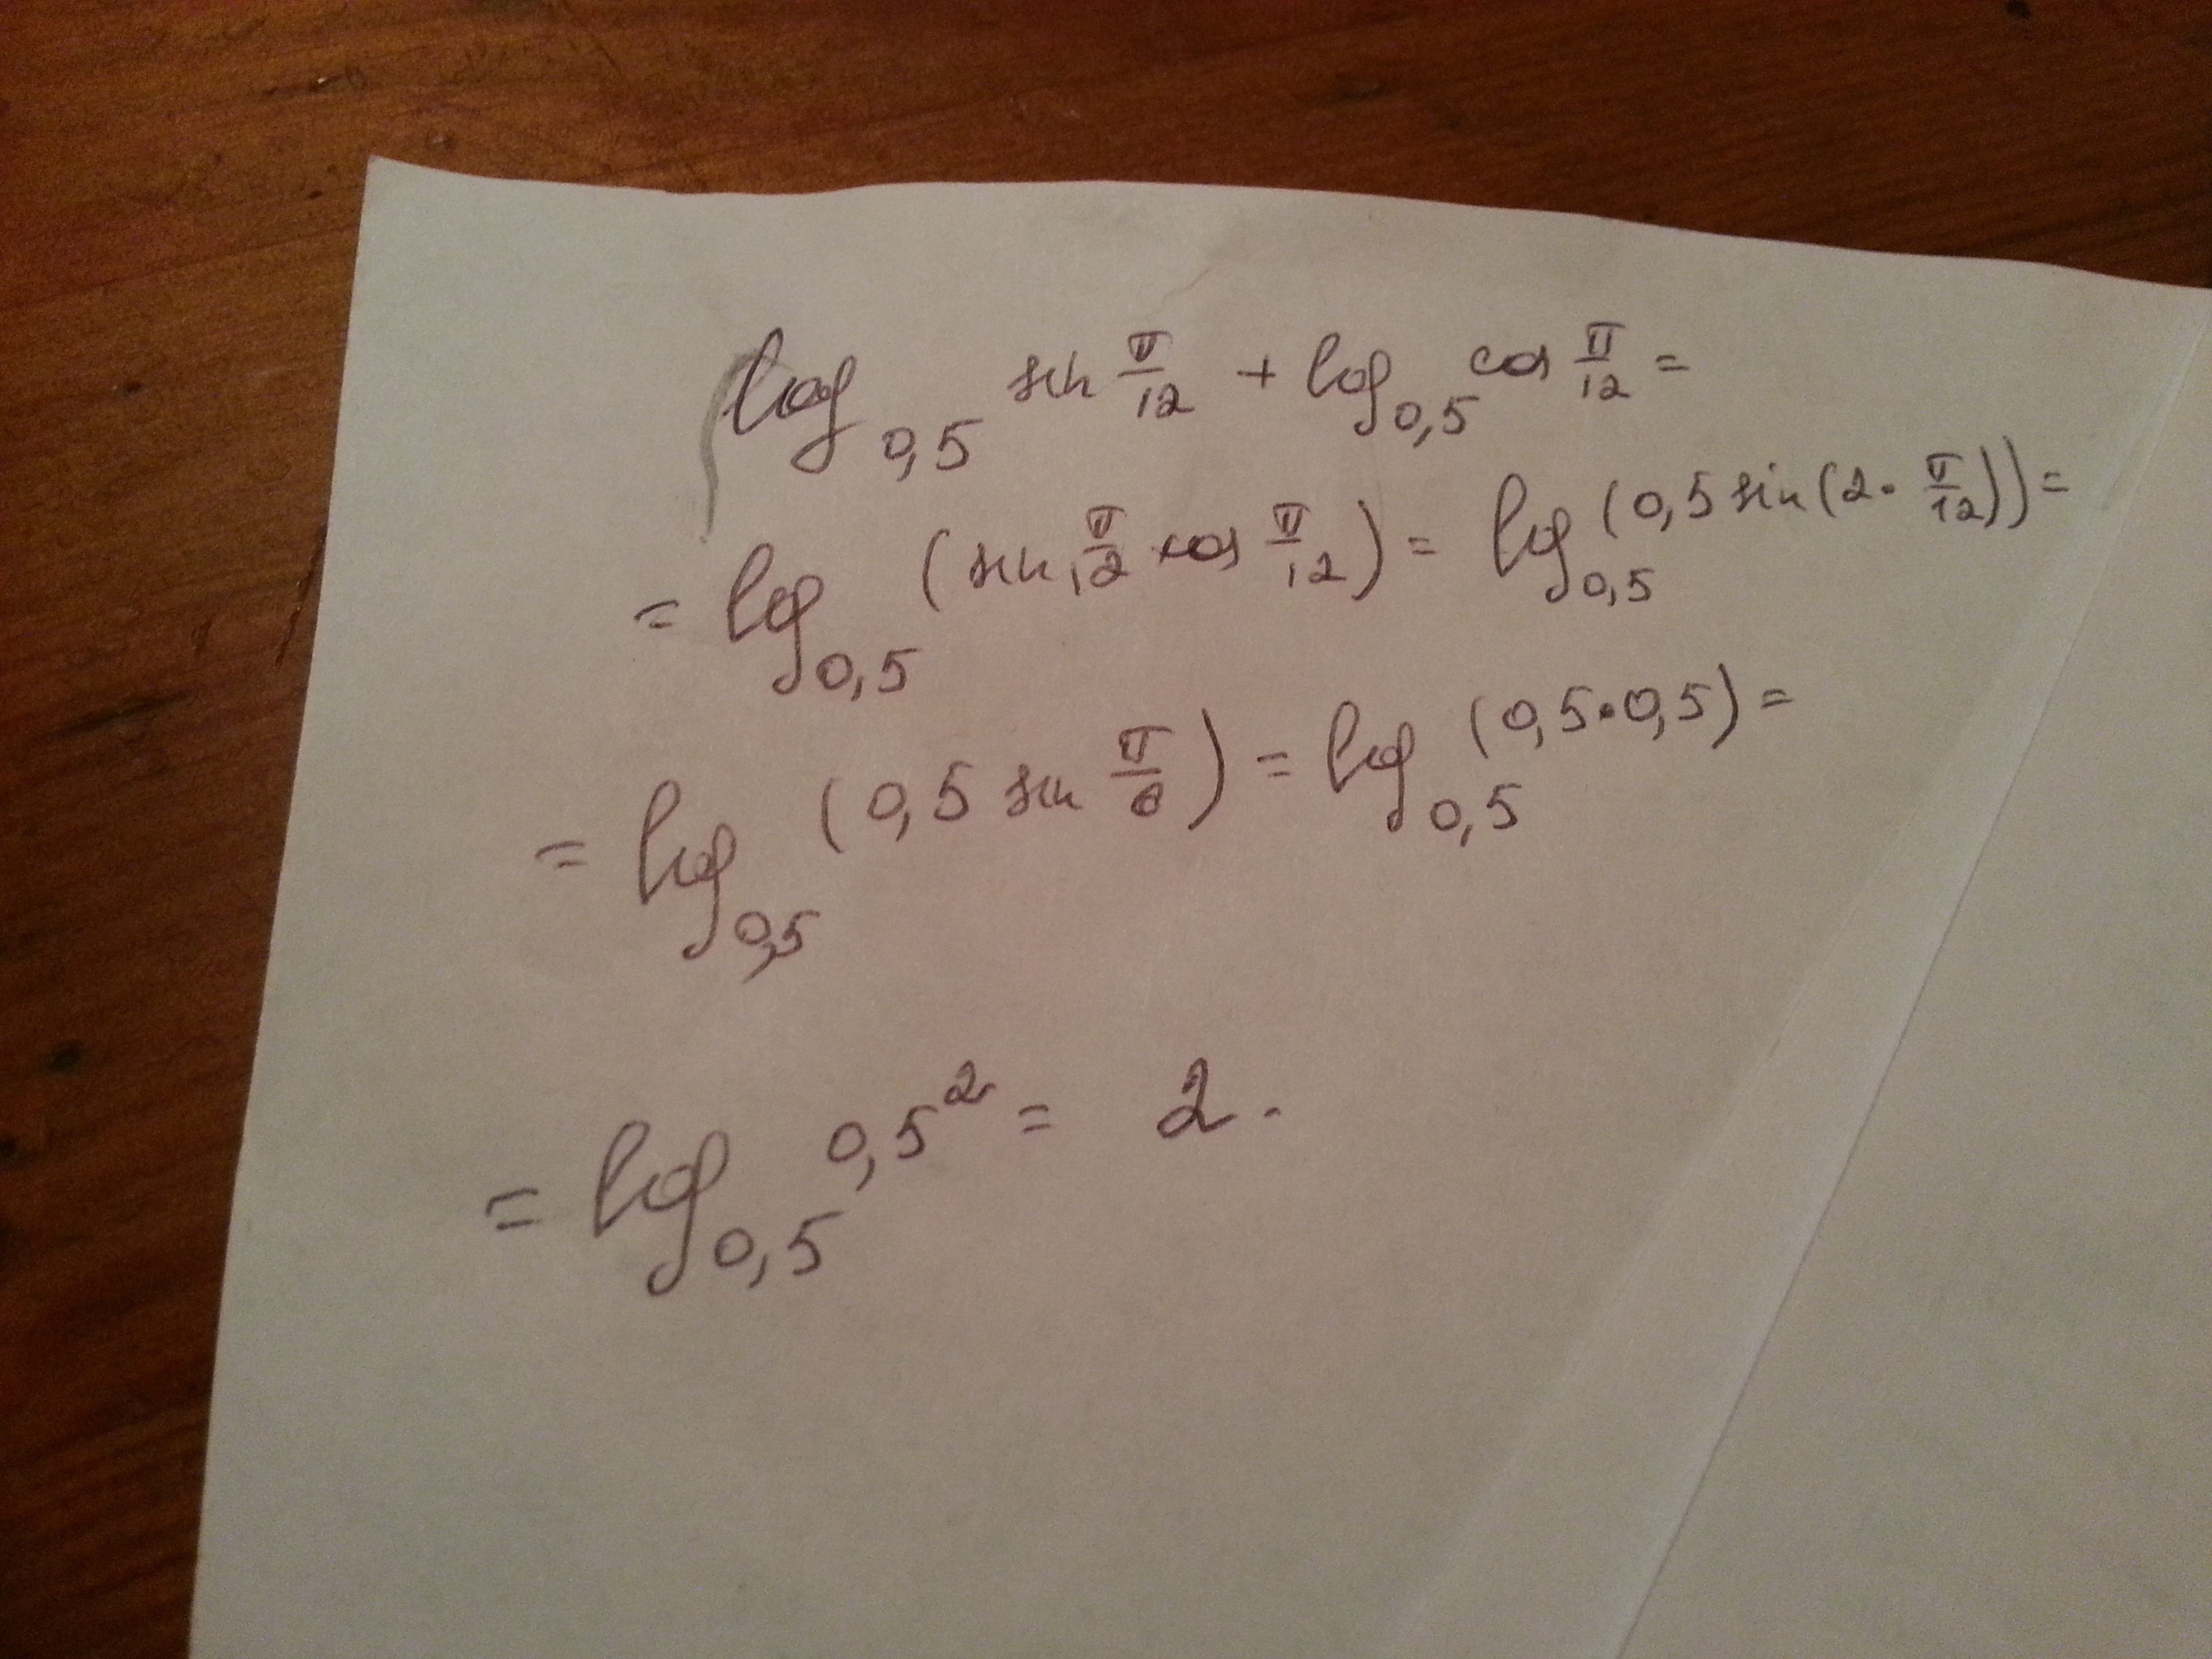 log_{0,5} sin π/12 + log_{0,5} cos π/12 =
= log_{0,5} (sin π/12 cos π/12) = log_{0,5} (0,5 sin(2·π/12)) =
= log_{0,5} (0,5 sin π/6) = log_{0,5} (0,5·0,5) =
= log_{0,5} 0,5² = 2.